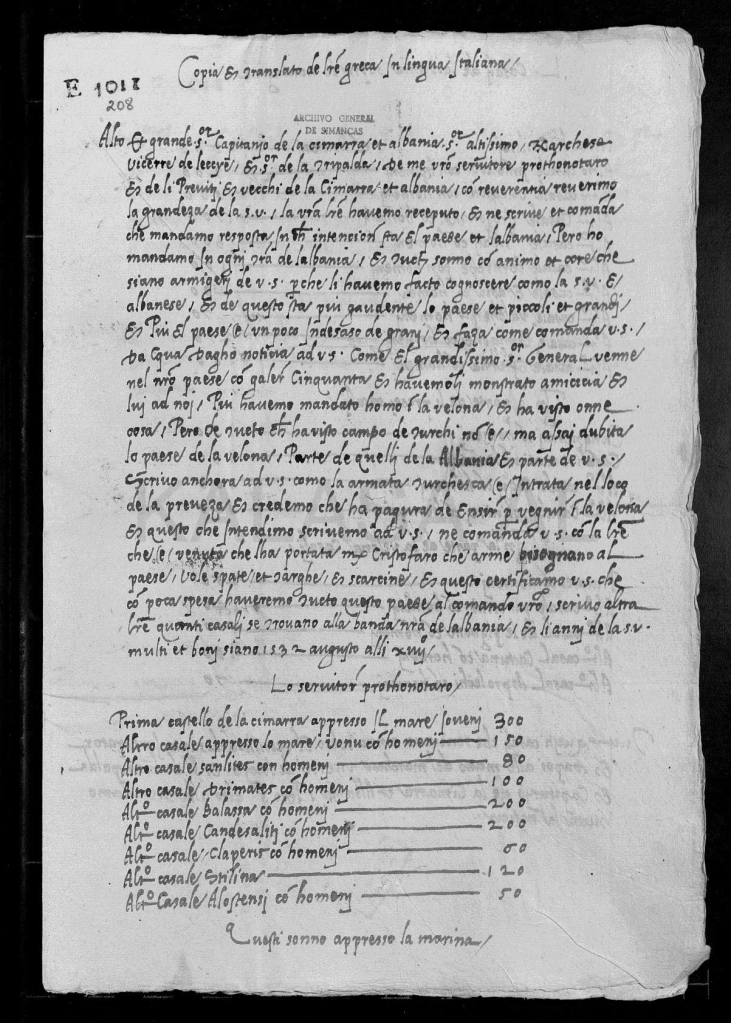 Copia et translato de lre greca In lingua Italiana
E 1011
208
ARCHIVO GENERAL
DE SIMANCAS
Alto et grande sor Capitanjo de la cimarra et albania sor altissimo, Marchese
vicerre de leccye, et sor de la tripalda, De me vro servitore prothonotaro
et de li Previti et vecchi de la Cimarra et albania, co reverentia reverimo
la grandeza de la s.v., la vra lre havemo receputo, et ne scrive et comada
che mandamo resposta In intencion sta El paese et lalbania, Pero ho
mandamo In ognj tra de lalbania, et tucti sonno co animo et core che
siano armigerj de v.s. p che li havemo facto cognoscere como la s.v. E
albanese, et de questo sta piu gaudente lo paese et piccoli et grandj
Et Piu El paese e un poco Indesaso de granj, et faza come comanda v.s.,
Da Cqua Dagho noticia ad v.s. Come El grandissimo sor General venne
nel nro paese co galere Cinquanta et havemolj monstrato amicicia et
luj ad noj, Piu havemo mandato homo i la velona, et ha visto onne
cosa, Pero De tucto havisto campo de turchi no e, ma assaj dubita
lo paese de la velona, Parte de quellj de la Albania et parte de v.s.,
Scrivo anchora ad v.s. como la armata turchesca e Intrata nel loco
de la preveza et credemo che ha pagura de Ensir p vegnir i la velona
et questo che Intendimo scrivemo ad v.s., ne comanda v.s. co la lre
che e venuta che lha portata Cristofaro che arme bisegnano al
paese, vole spate et targhe, et scarcine, et questo certificamo v.s. che
co poca spesa haveremo tucto questo paese al comando vro, scrivo altra
lre quanti casalj se trovano alla banda nra de lalbania, et li annj de la s.v.
multi et bonj siano 1532 augusto alli xviijo
Lo servitor prothonotaro
Prima castello de la cimarra appresso IL mare Iovenj 300
Altro casale appresso lo mare, vonu co homenj 150
Altro casale sanlites con homenj 80
Altro casale Drimates co homenj 100
Altro casale Balassa co homenj 200
Altro casale Candesalitj co homenj 200
Altro casale Claperis co homenj 60
Altro casale Stilina 120
Altro Casale Alostensj co homenj 50
Questi sonno appresso la marina